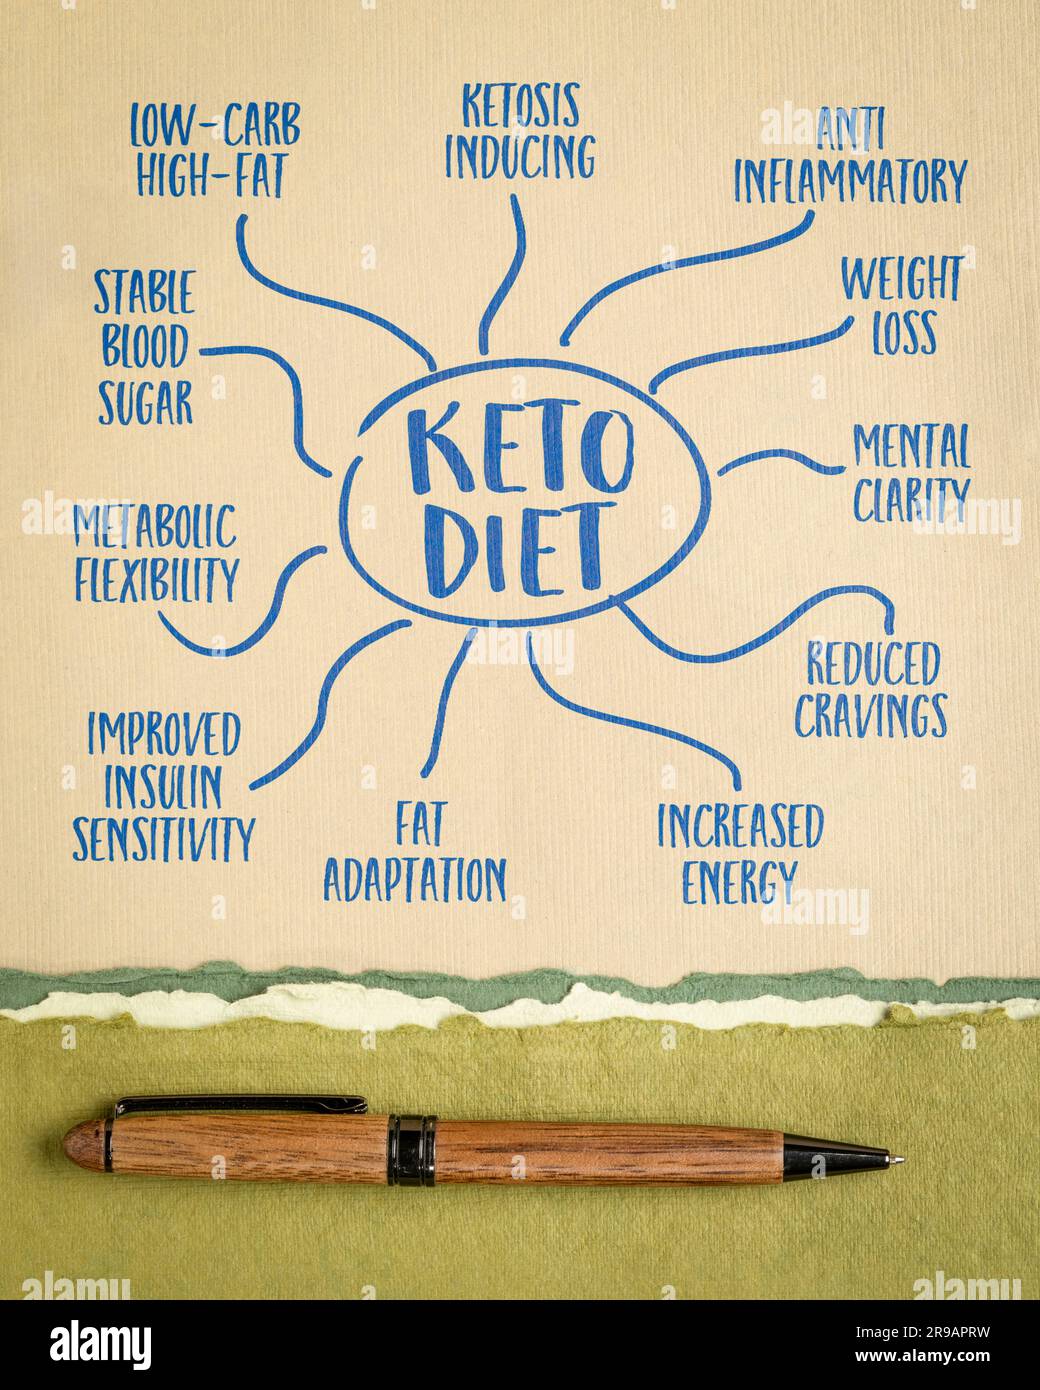 LOW-CARB
HIGH-FAT
KETOSIS
INDUCING
ANTI
INFLAMMATORY
STABLE
BLOOD
SUGAR
WEIGHT
LOSS
KETO
DIET
MENTAL
CLARITY
METABOLIC
FLEXIBILITY
REDUCED
CRAVINGS
IMPROVED
INSULIN
SENSITIVITY
FAT
ADAPTATION
INCREASED
ENERGY
alamy
Image ID: 2R9APRW
www.alamy.com